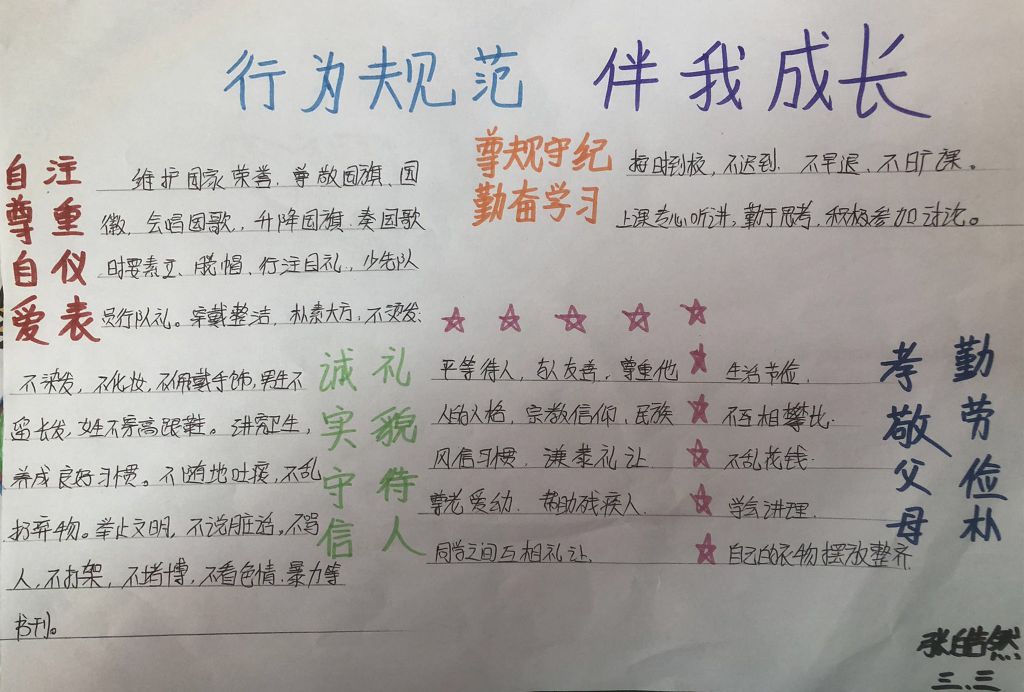 行为规范 伴我成长
自尊自爱
注重仪表
维护国家荣誉,尊敬国旗、国
徽,会唱国歌,升降国旗、奏国歌
时要肃立、脱帽、行注目礼,少先队
员行队礼。穿戴整洁,朴素大方,不烫发,
不染发,不化妆,不佩戴手饰,男生不
留长发,女生不穿高跟鞋。讲究卫生,
养成良好习惯。不随地吐痰,不乱
扔弃物。举止文明,不说脏话。不骂
人,不打架,不堵博,不看色情、暴力等
书刊。
尊规守纪
勤奋学习
按时到校,不迟到、不早退、不旷课。
上课专心听讲,勤于思考,积极参加讨论。
诚实守信
礼貌待人
平等待人,与人友善,尊重他
人的人格,宗教信仰、民族
风俗习惯,谦恭礼让
尊老爱幼、帮助残疾人,
同学之间互相礼让,
孝敬父母
勤劳俭朴
生活节俭,
不互相攀比.
不乱花钱.
学会讲理.
自己的衣物摆放整齐.
张皓然
三.三